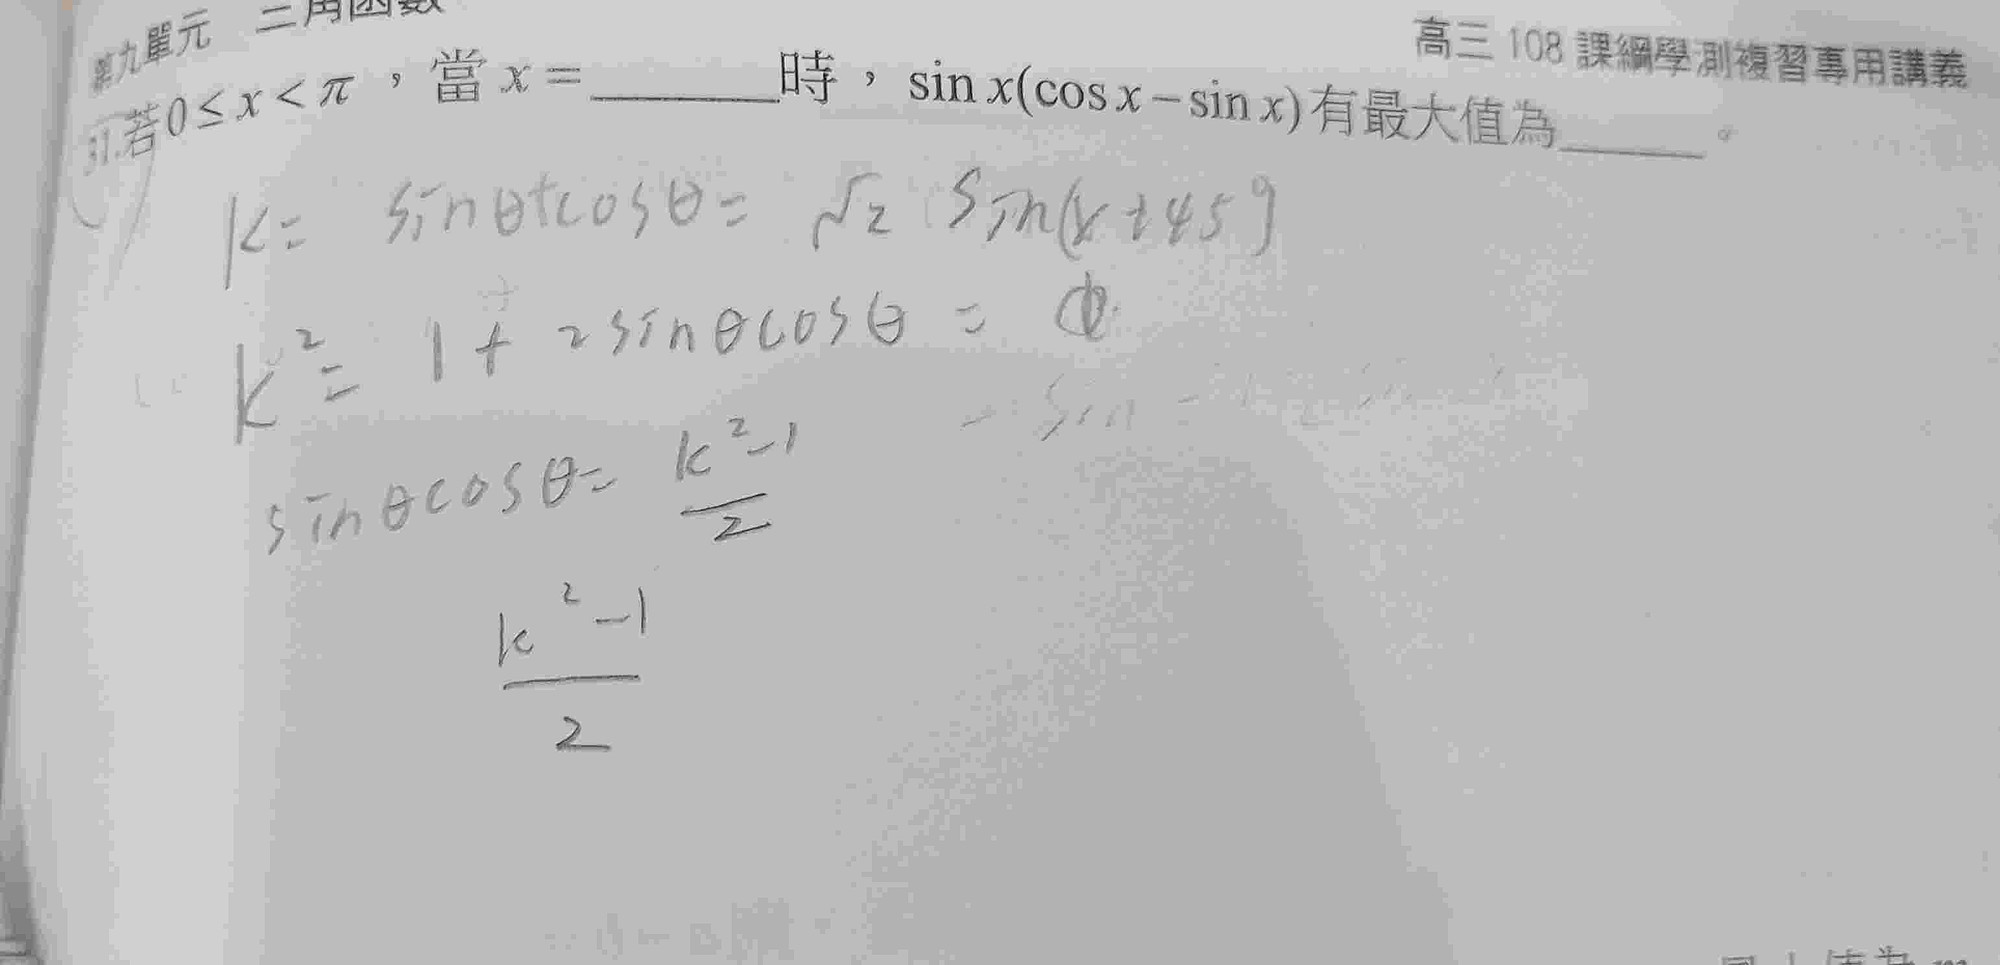 第九單元 三角函數
高三 108 課綱學測複習專用講義
31.若0≤x<π，當x=______時，sin x(cos x−sin x)有最大值為______。
k= sinθ+cosθ= √2 sin(x+45°)
k²= 1+2sinθcosθ =
sinθcosθ= k²-1
2
k²-1
2